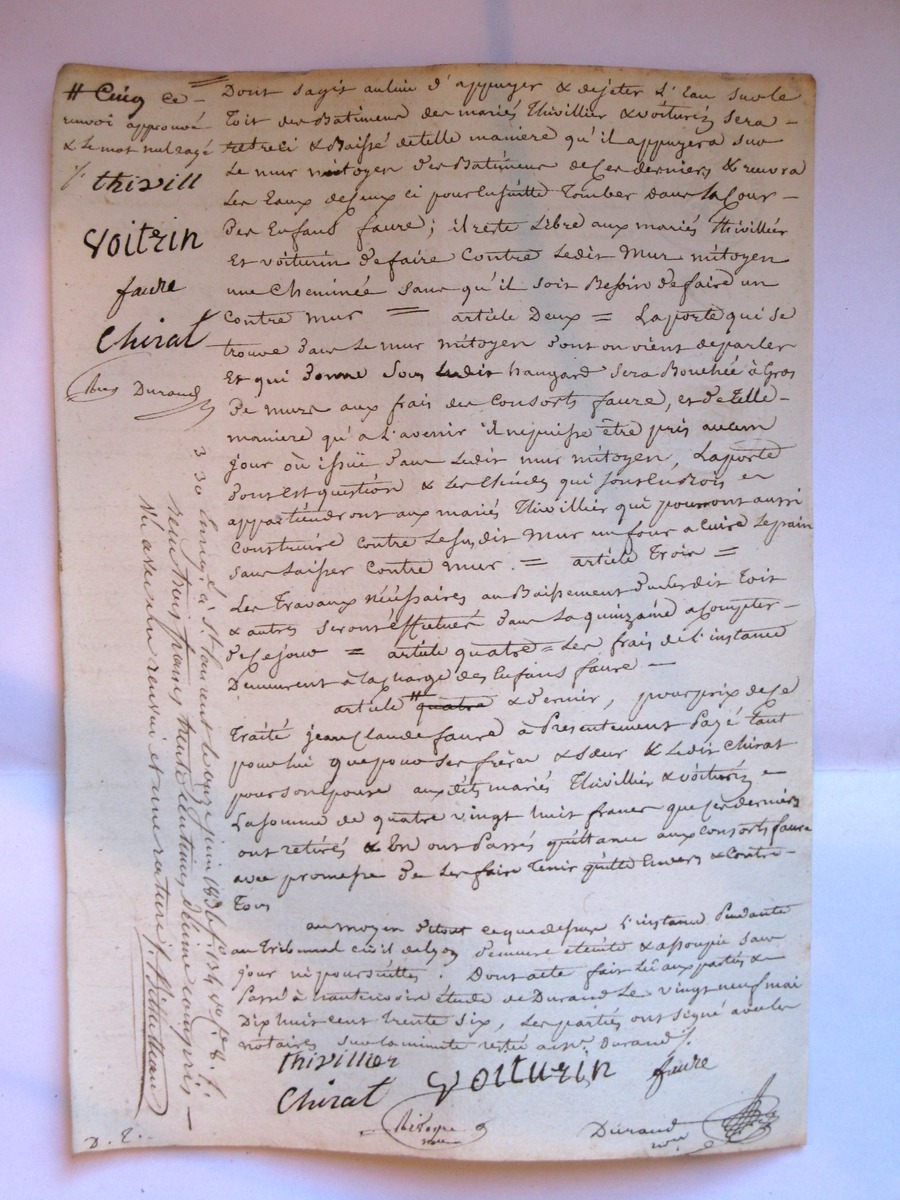 # Cinq ce-
renvoi approuvé
& le mot nul rayé
thivill
Voitrin
faure
Chirat
Durand
Dont sagit au lieu d'appuyer & dejeter L'Eau sur le
Toit des Batimens des mariés Thivillier & voiturin sera -
retreci & Baissé detelle maniere qu'il appuyera sur
Le mur mitoyen des Batimens de ces derniers & recevra
Les Eaux de ceux ci pour Ensuitte Tomber dans la Cour -
Des Enfans faure; il reste Libre aux mariés thivillier
Et voiturin de faire Contre Ledit Mur mitoyen
une Cheminée sans qu'il soit Besoin de faire un
Contre mur = article Deux = La porte qui se
trouve dans Le mur mitoyen dont on vient de parler
Et qui donne Sous Ledit hangard sera Bouchée à Gros
De murs aux frais des Consorts faure, et de telle -
maniere qu'a L'avenir il ne puisse être pris aucun
jour où issüe dans Ledit mur mitoyen, La porte
dont est question & Les qui sont en Bois
appartiendront aux mariés Thivillier qui pourront aussi
Construire Contre Le susdit Mur un four a Cuire Le pain
sans laisser Contre mur. = article Trois =
Les Travaux nécéssaires au Baissement dudit Toit
& autres seront éffectués dans La quinzaine a compter -
de ce jour = article quatre = Les frais de l'instance
Demeurent à la charge des Enfans faure -
article # quatre & dernier, pour prix de ce
Traité jean Claude faure à Presentement Payé tant
pour lui que pour ses frères & soeur & Ledit Chirat
pour son épouse aux dits mariés Thivillier & voiturin
La somme de quatre vingt huit francs que ces derniers
ont retirés & En ont Passés quittance aux consorts faure
avec promesse de Les faire Tenir quitte Envers & Contre -
Tous
au moyen de tout ce que dessus L'instance Pendante
au Tribunal civil de Lyon demeure éteinte & assoupie sans
jour ni poursuittes. Dont acte fait Lû aux parties &
Passé à étude de Durand Le vingt neuf mai
Dix huit cent trente six, Les parties ont signé avec les
notaires sur la minute restée a Mr. Durand
thivillier
Voiturin
faure
Chirat
Durand
nore
D. E.
Enreg. à St. Laurent le onze juin 1836 fo. 134
reçu trois francs trente centimes dixime compris -
Vu avec un renvoi et une rature